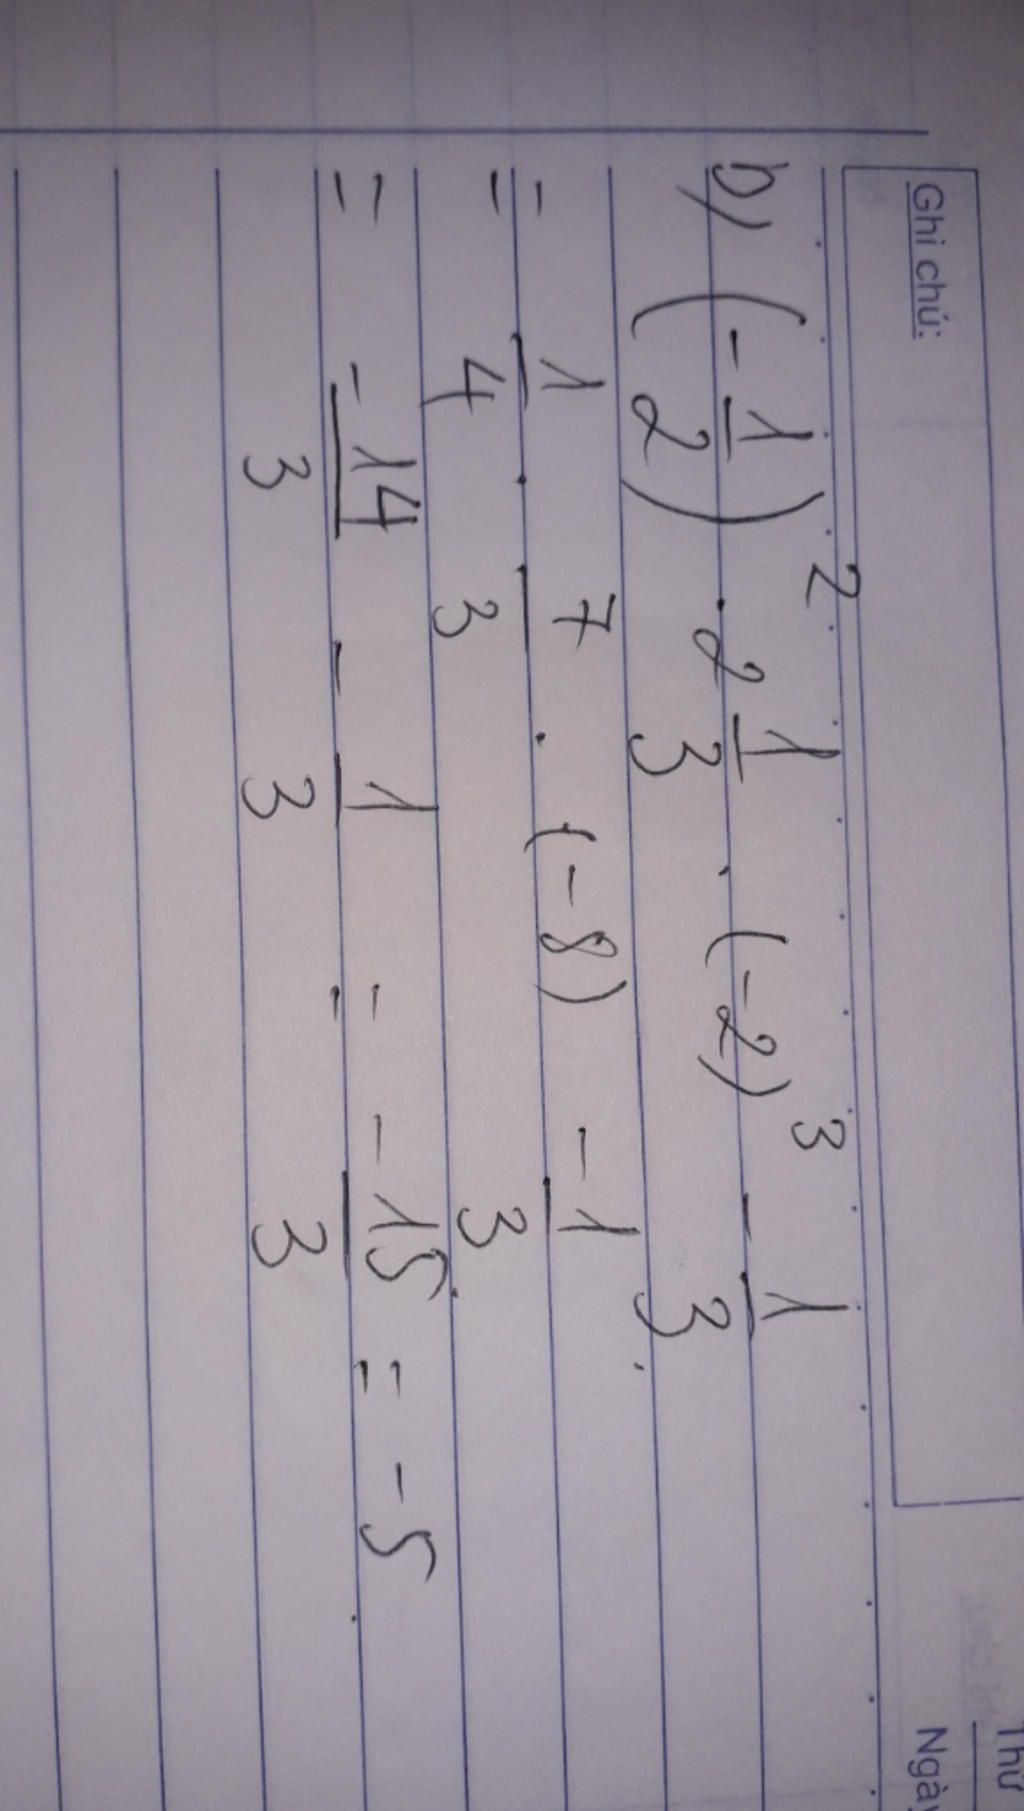 Ghi chú:
Thứ
Ngày
b) (-1/2)² . 2 1/3 . (-2)³ - 1/3
= 1/4 . 7/3 . (-8) - 1/3
= -14/3 - 1/3 = -15/3 = -5